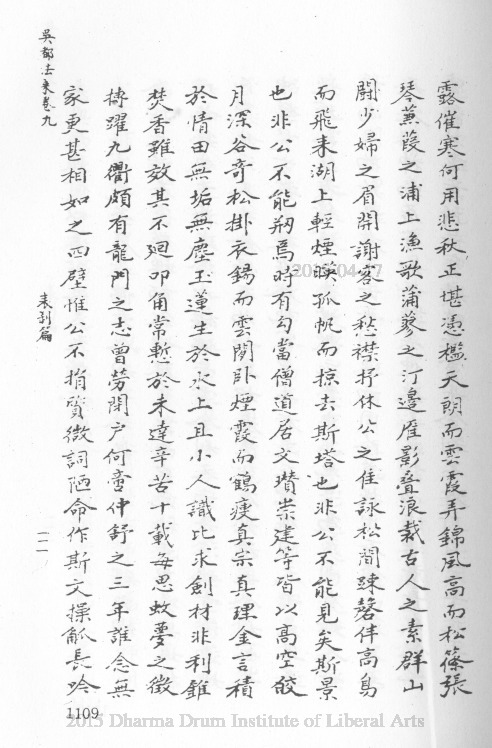 吳都法乘卷九
露催寒何用悲秋正堪憑檻天朗而雲霞弄錦風高而松篠張
琴蒹葭之浦上漁歌蒲蓼之汀邊雁影疊浪裁古人之素群山
鬪少婦之眉開謝客之愁襟抒休公之佳詠松間踈磬伴高鳥
而飛來湖上輕煙暎孤帆而掠去斯塔也非公不能見矣斯景
也非公不能剏焉時有勾當僧道居文瓚崇建等皆以高空皎
月深谷奇松掛衣錫而雲閑臥煙霞而鶴瘦真宗真理金言積
於情田無垢無塵玉蓮生於水上且小人識比求劍材非利錐
焚香雖效其不廻叩角常慙於未達辛苦十載每思蚁夢之徵
摶躍九衢頗有龍門之志曾勞閉户何啻仲舒之三年誰念無
家更甚相如之四壁惟公不捐質微詞陋命作斯文操觚長吟
表刹篇
一一
1109
2015-04-17
2015 Dharma Drum Institute of Liberal Arts